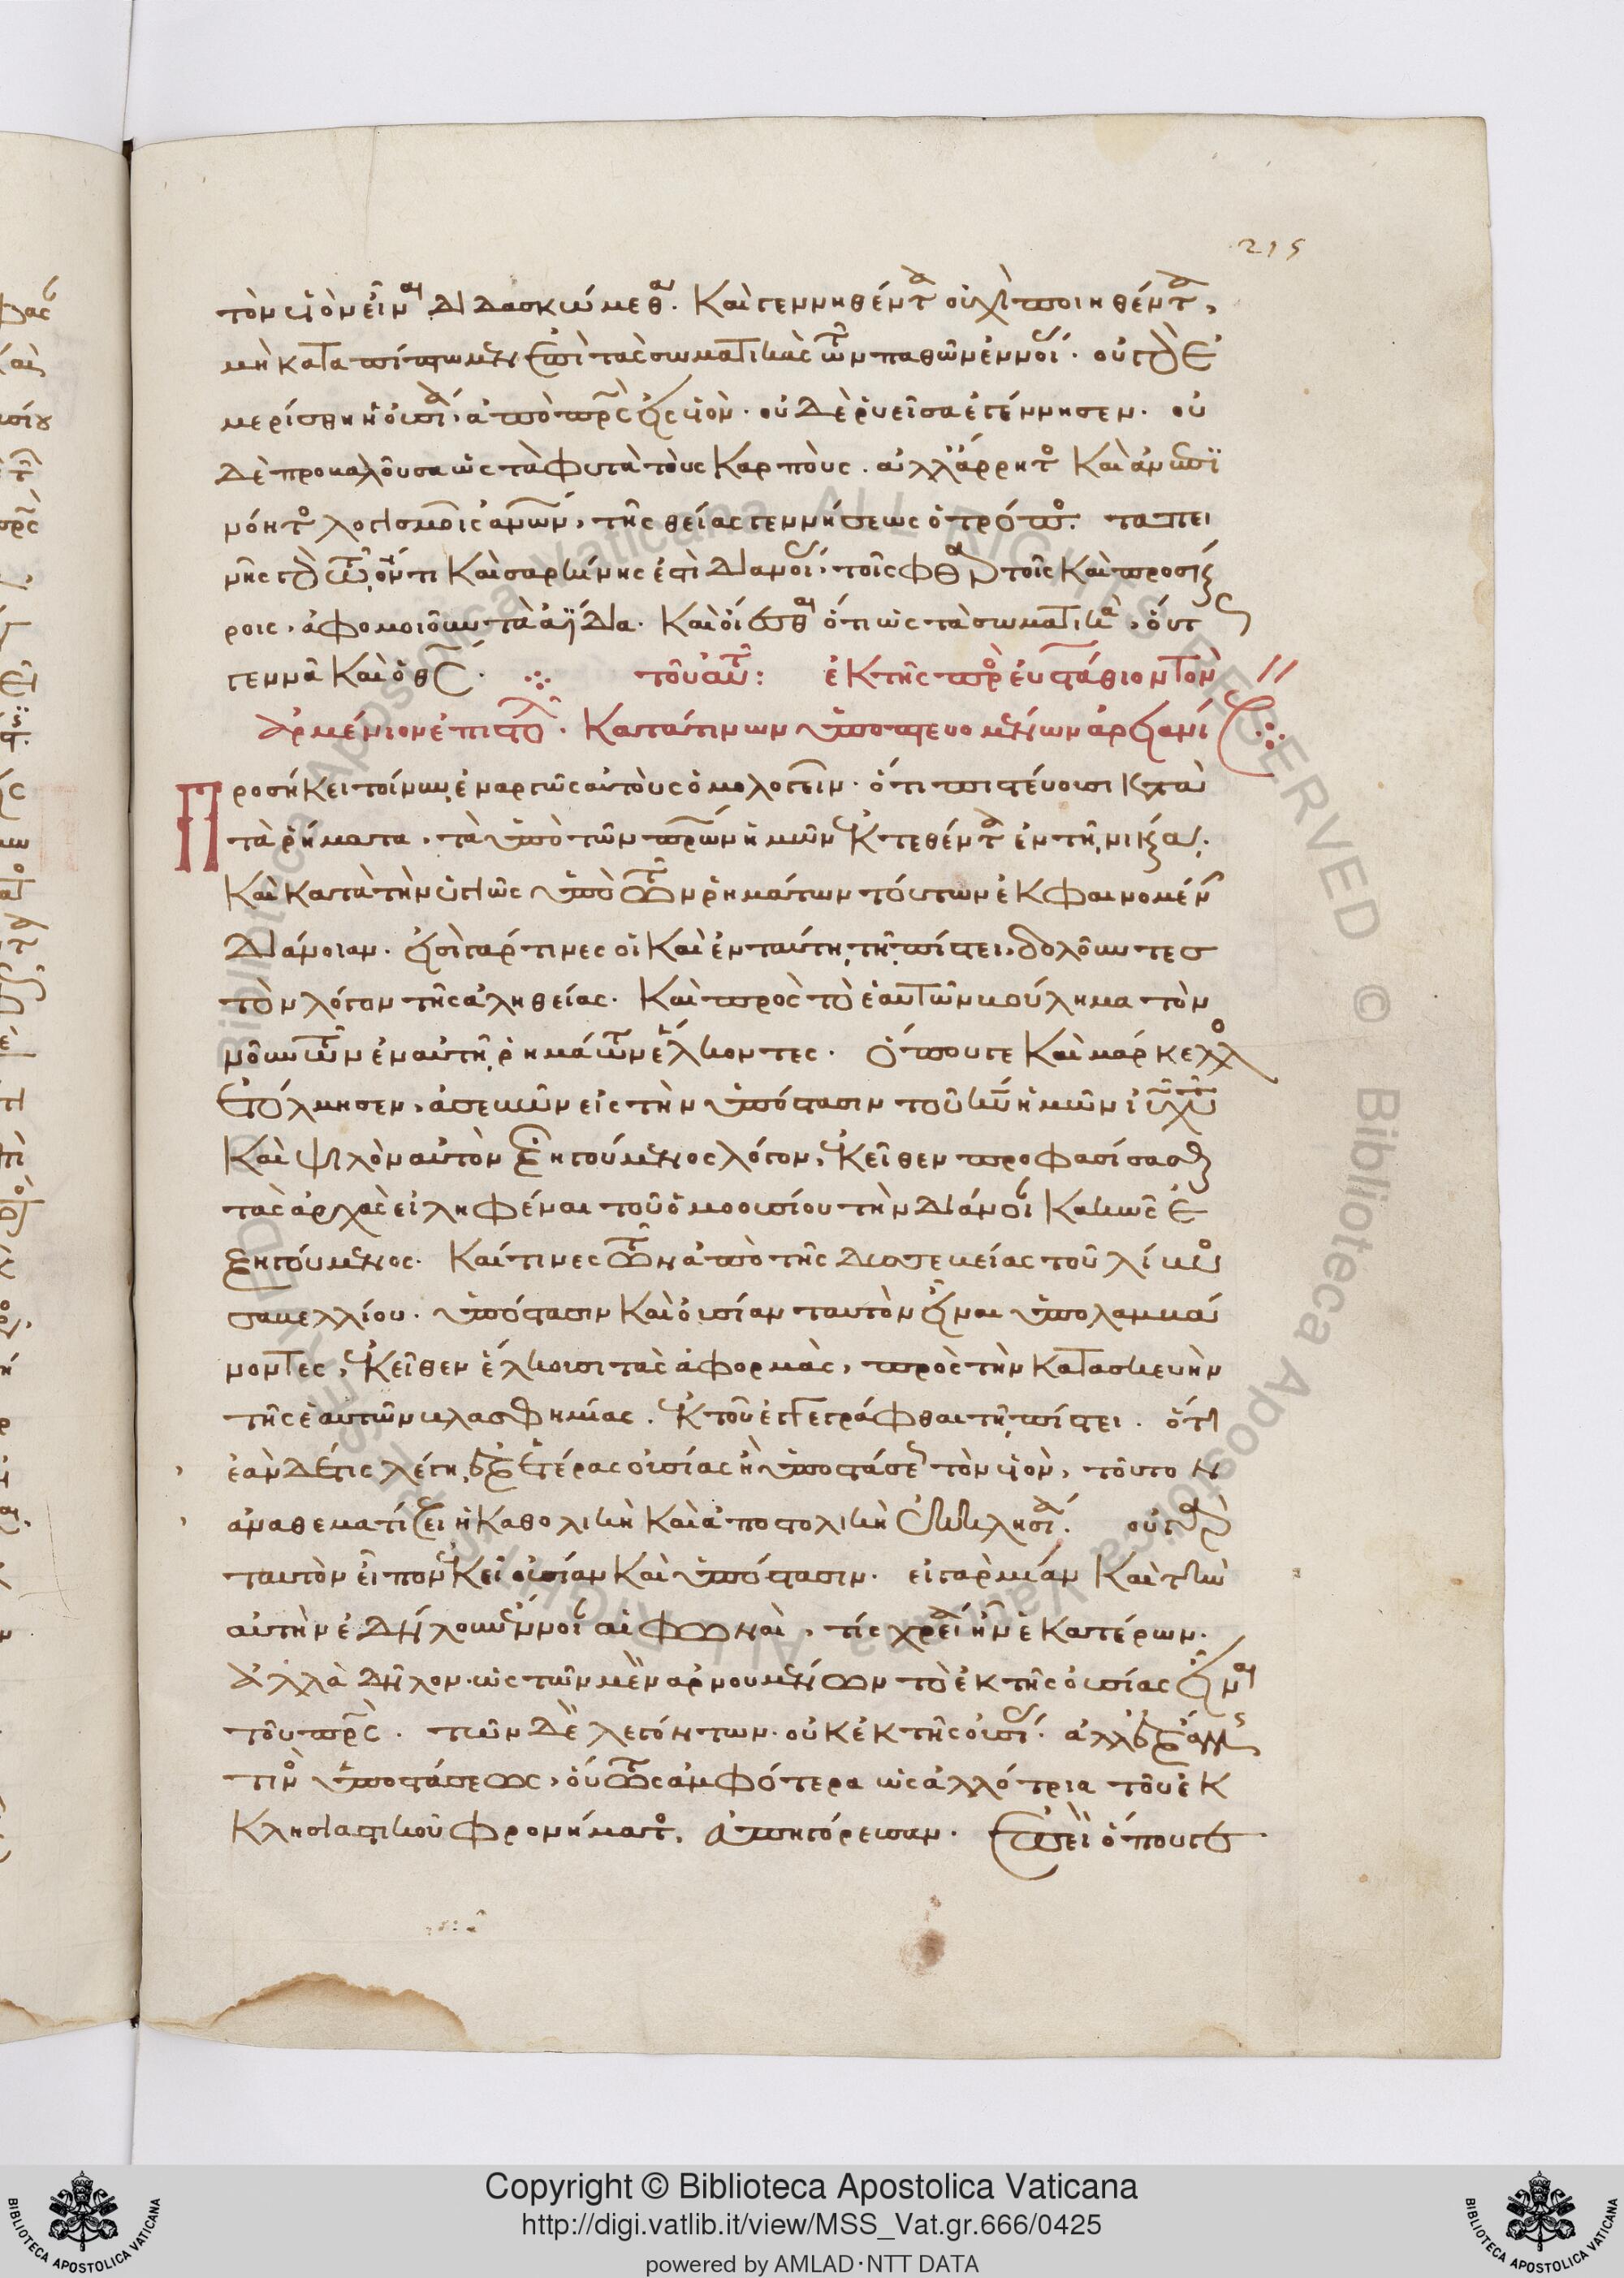 215
τὸν υἱὸν εἶναι διδασκώμεθα. καὶ γεννηθέντα οὐχὶ ποιηθέντα,
μὴ καταπίπτωμεν ἐπὶ τὰς σωματικὰς τῶν παθῶν ἐννοίας. οὐ γὰρ ἐ
μερίσθη ἡ οὐσία, ἀπὸ πρς εἰς υἱόν. οὐδὲ ῥυεῖσα ἐγέννησεν. οὐ
δὲ προκαλοῦσα ὡς τὰ φυτὰ τοὺς καρποὺς. ἀλλ' ἄρρητος καὶ ἀνεπι
νόητος λογισμοῖς ἀνων, τῆς θείας γεννήσεως ὁ τρόπος. ταπει
νῆς γὰρ τῷ ὄντι καὶ σαρκίνης ἐστὶ διανοίας, τοῖς φθαρτοῖς καὶ προσκαί
ροις, ἀφομοιοῦν τὰ ἀΐδια. καὶ οἴεσθαι ὅτι ὡς τὰ σωματικὰ, οὕτω
γεννᾶ καὶ ὁ θς.
τοῦ αὐτοῦ: ἐκ τῆς πρὸς εὐστάθιον τὸν
ἀρμένιον ἐπιστολῆς. κατά τινων ὑποπτευομένων ἀρειανίζειν
Προσήκει τοίνυν ἐναργῶς αὐτοὺς ὁμολογεῖν. ὅτι πιστεύουσι κατὰ
τὰ ῥήματα, τὰ ὑπὸ τῶν πρων ἡμῶν ἐκτεθέντα ἐν τῇ νικαίᾳ.
καὶ κατὰ τὴν ὑγιῶς ὑπὸ τῶν ῥημάτων τούτων ἐκφαινομένην
διάνοιαν. εἰσὶ γάρ τινες οἱ καὶ ἐν ταύτῃ τῇ πίστει, δολοῦντες
τὸν λόγον τῆς ἀληθείας. καὶ πρὸς τὸ ἑαυτῶν βούλημα τὸν
νοῦν τῶν ἐν αὐτῇ ῥημάτων ἕλκοντες. ὅπου γε καὶ μάρκελλος
ἐτόλμησεν, ἀσεβῶν εἰς τὴν ὑπόστασιν τοῦ κυ ἡμῶν ιυ χυ
καὶ ψιλὸν αὐτὸν ἐξηγούμενος λόγον, ἐκεῖθεν προφασίσασθαι
τὰς ἀρχὰς εἰληφέναι τοῦ ὁμοουσίου τὴν διάνοιαν κακῶς ἐ
ξηγούμενος. καί τινες τῶν ἀπὸ τῆς δυσσεβείας τοῦ λίβυος
σαβελλίου. ὑπόστασιν καὶ οὐσίαν ταυτὸν εἶναι ὑπολαμβά
νοντες, ἐκεῖθεν ἕλκουσι τὰς ἀφορμὰς, πρὸς τὴν κατασκευὴν
τῆς ἑαυτῶν βλασφημίας. ἐκ τοῦ ἐγγεγράφθαι τῇ πίστει. ὅτι
ἐὰν δέ τις λέγῃ ἐξ ἑτέρας οὐσίας ἢ ὑποστάσεως τὸν υἱὸν, τοῦτον
ἀναθεματίζει ἡ καθολικὴ καὶ ἀποστολικὴ ἐκκλησία. οὐ γὰρ
ταυτὸν εἶπον ἐκεῖ οὐσίαν καὶ ὑπόστασιν. εἰ γὰρ μίαν καὶ τὴν
αὐτὴν ἐδήλουν ἔννοιαν αἱ φωναὶ, τίς χρεία ἦν ἑκατέρων.
ἀλλὰ δῆλον. ὡς τῶν μὲν ἀρνουμένων τὸ ἐκ τῆς οὐσίας εἶναι
τοῦ πρς. τῶν δὲ λεγόντων. οὐκ ἐκ τῆς οὐσίας. ἀλλ' ἐξ ἄλλης
τινὸς ὑποστάσεως, οὕτως ἀμφότερα ὡς ἀλλότρια τοῦ ἐκ
κλησιαστικοῦ φρονήματος, ἀπηγόρευσαν. ἐπεὶ ὅπου γε
Copyright © Biblioteca Apostolica Vaticana
http://digi.vatlib.it/view/MSS_Vat.gr.666/0425
powered by AMLAD·NTT DATA